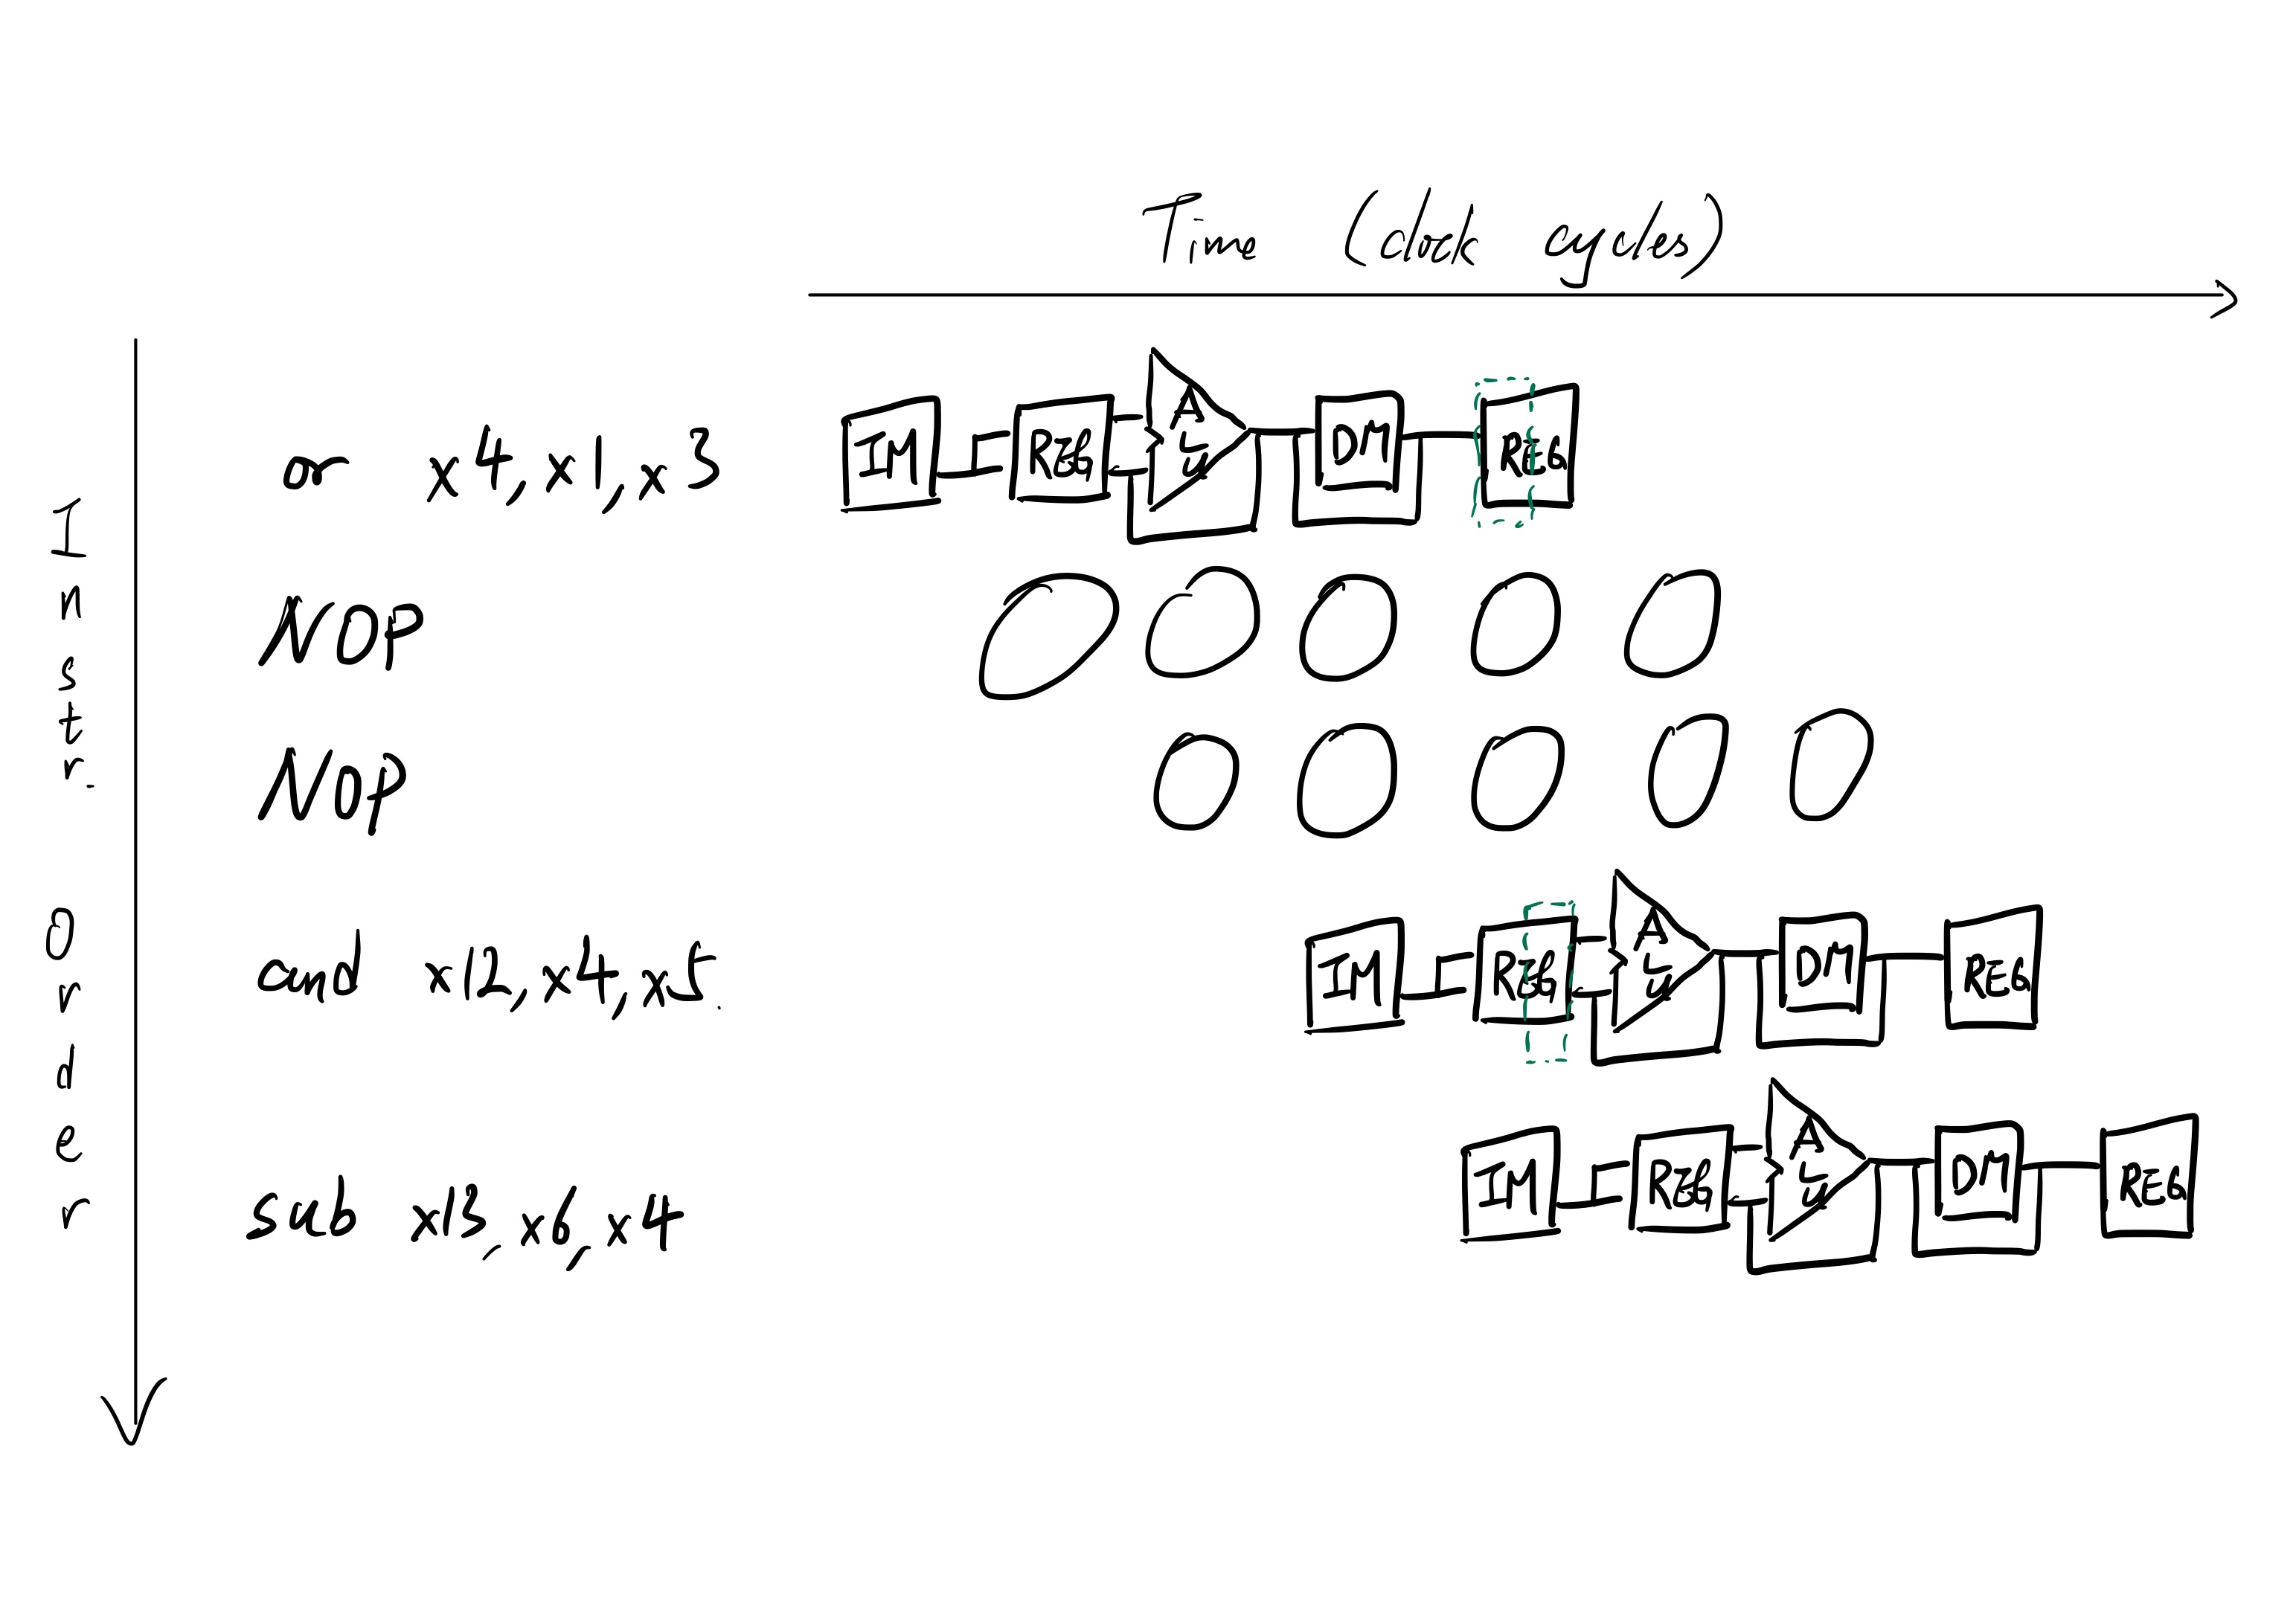 Time (clock cycles)
Instr. Order
or x4, x1, x3
IM REG ALU DM REG
NOP
NOP
and x12, x4, x5
IM REG ALU DM REG
sub x13, x6, x4
IM REG ALU DM REG